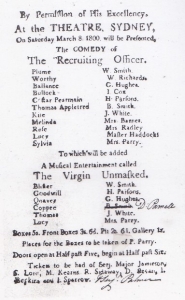 By Permission of His Excellency,
At the THEATRE, SYDNEY,
On Saturday March 8. 1800. will be Presented,
The COMEDY of
The Recruiting Officer.
Plume W. Smith.
Worthy W. Richards.
Ballance G. Hughes.
Bullock I. Cox.
Coſtar Pearmain H. Parsons.
Thomas Appletree B. Smith.
Kite J. White.
Melinda Mrs. Barnes.
Rose Mrs Radley
Lucy Master Haddocks
Sylvia Mrs. Parry.
To which will be added
A Musical Entertainment called
The Virgin Unmasked.
Blister W. Smith.
Goodwill H. Parsons.
Quaver G. Hughes.
Coupee
Thomas J. White.
Lucy Mrs. Parry.
Boxes 5s. Front Boxes 3s. 6d. Pit 2s. 6d. Gallery 1s.
Places for the Boxes to be taken of P. Parry.
Doors open at Half past Five, begin at Half past Six.
Tickets to be had of Serj. Major Jamieson,
S. Lord, M. Kearns, R. Sidaway, D. Bevan, I.
and I. Sparrow.